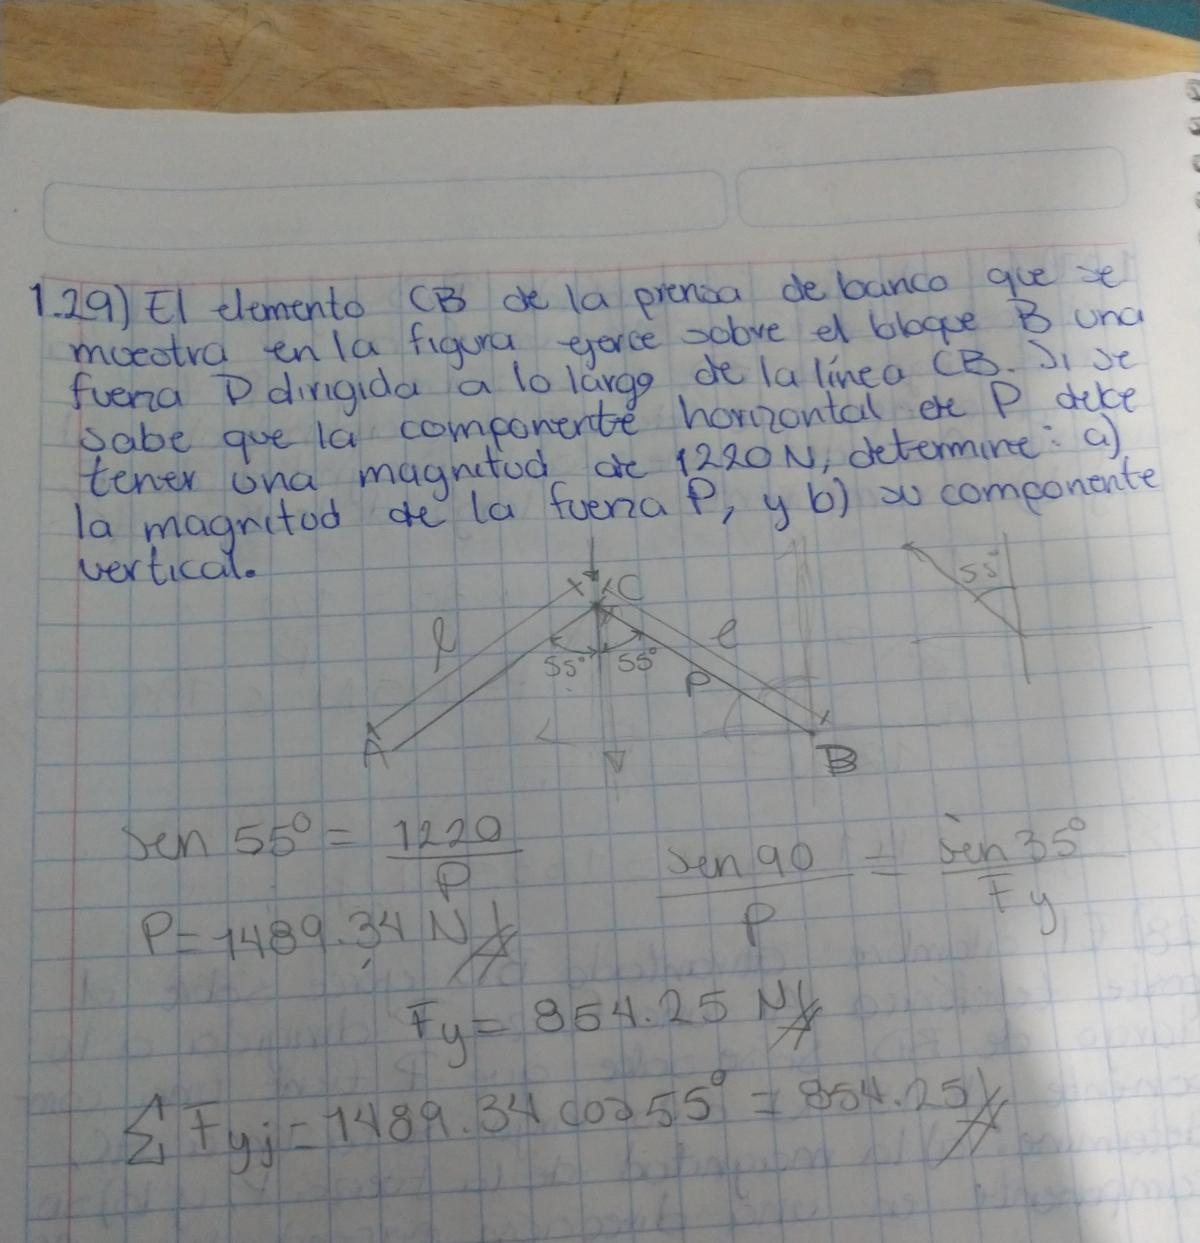 1.29) El elemento CB de la prensa de banco que se
muestra en la figura ejerce sobre el bloque B una
fuerza P dirigida a lo largo de la línea CB. Si se
sabe que la componente horizontal de P debe
tener una magnitud de 1220 N, determine: a)
la magnitud de la fuerza P, y b) su componente
vertical.
C
55°
l
l
55° 55°
P
A
B
sen 55° = 1220 / P
sen 90 / P = sen 35° / Fy
P = 1489.34 N
Fy = 854.25 N
Σ Fyj = 1489.34 cos 55° = 854.25